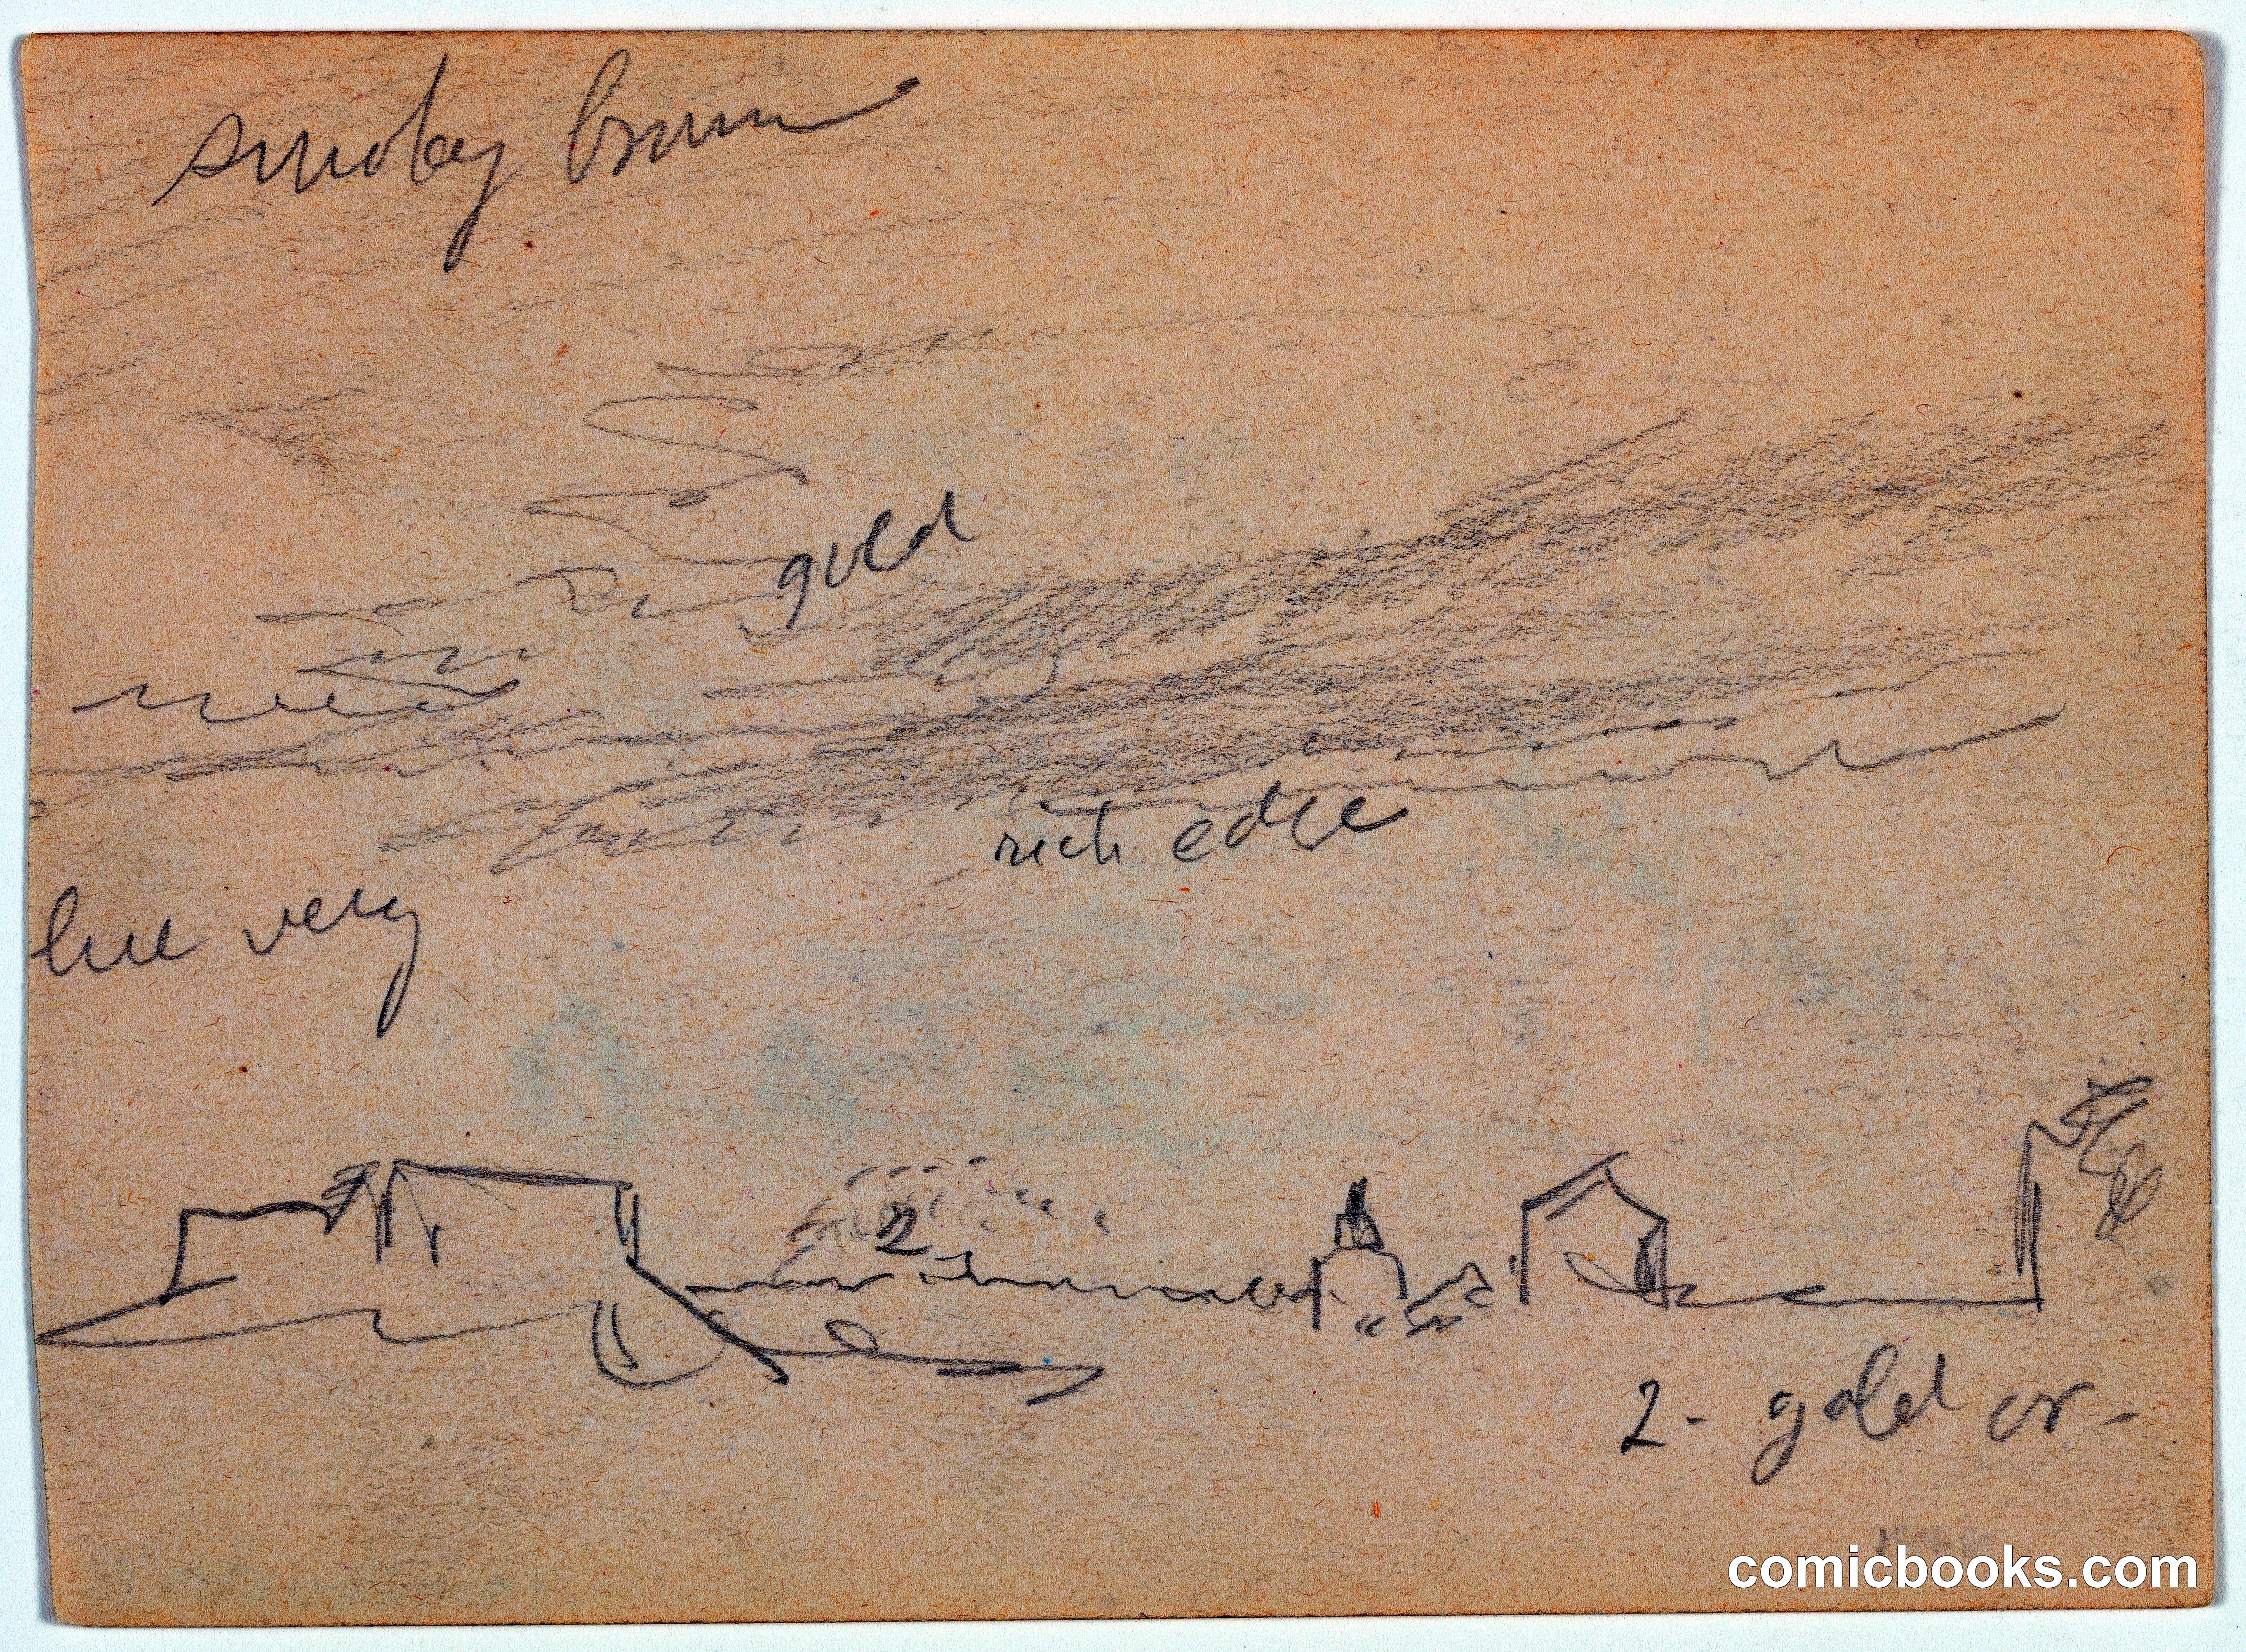 smokey brown
gold
rich edge
blue very
2
2 - gold or -
comicbooks.com